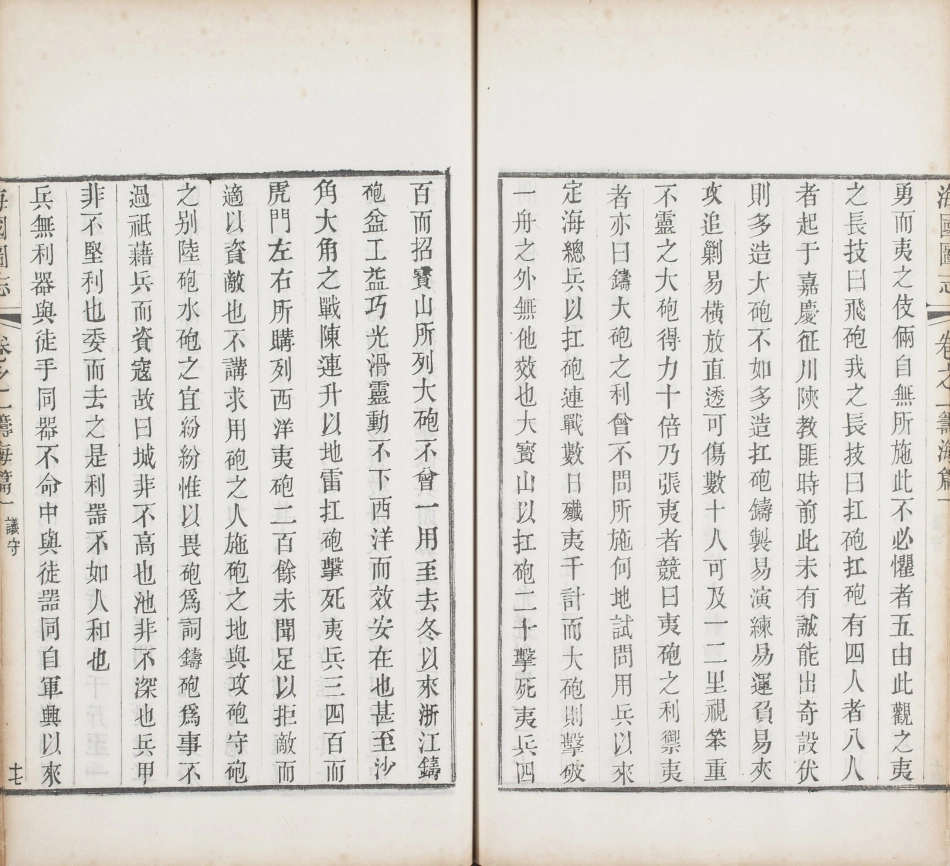 海國圖志 卷之一 籌海篇一
勇而夷之伎倆自無所施此不必懼者五由此觀之夷
之長技曰飛砲我之長技曰扛砲扛砲有四人者八人
者起于嘉慶征川陝教匪時前此未有誠能出奇設伏
則多造大砲不如多造扛砲鑄製易演練易運負易夾
攻追剿易橫放直透可傷數十人可及一二里視笨重
不靈之大砲得力十倍乃張夷者競曰夷砲之利禦夷
者亦曰鑄大砲之利曾不問所施何地試問用兵以來
定海總兵以扛砲連戰數日殲夷千計而大砲則擊破
一舟之外無他效也大寶山以扛砲二十擊死夷兵四
百而招寶山所列大砲不曾一用至去冬以來浙江鑄
砲益工益巧光滑靈動不下西洋而效安在也甚至沙
角大角之戰陳連升以地雷扛砲擊死夷兵三四百而
虎門左右所購列西洋夷砲二百餘未聞足以拒敵而
適以資敵也不講求用砲之人施砲之地與攻砲守砲
之別陸砲水砲之宜紛紛惟以畏砲爲詞鑄砲爲事不
過祗藉兵而資寇故曰城非不高也池非不深也兵甲
非不堅利也委而去之是利器不如人和也
兵無利器與徒手同器不命中與徒器同自軍興以來
海國圖志 卷之一 籌海篇一 議守 十七